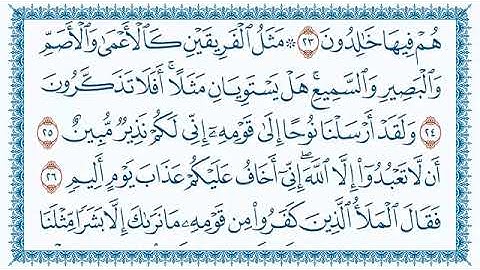 هُمْ فِيهَا خَٰلِدُونَ ٢٣ ۞ مَثَلُ ٱلْفَرِيقَيْنِ كَٱلْأَعْمَىٰ وَٱلْأَصَمِّ
وَٱلْبَصِيرِ وَٱلسَّمِيعِ ۚ هَلْ يَسْتَوِيَانِ مَثَلًا ۚ أَفَلَا تَذَكَّرُونَ
٢٤ وَلَقَدْ أَرْسَلْنَا نُوحًا إِلَىٰ قَوْمِهِۦٓ إِنِّى لَكُمْ نَذِيرٌ مُّبِينٌ ٢٥
أَن لَّا تَعْبُدُوٓا۟ إِلَّا ٱللَّهَ ۖ إِنِّىٓ أَخَافُ عَلَيْكُمْ عَذَابَ يَوْمٍ أَلِيمٍ ٢٦
فَقَالَ ٱلْمَلَأُ ٱلَّذِينَ كَفَرُوا۟ مِن قَوْمِهِۦ مَا نَرَىٰكَ إِلَّا بَشَرًا مِّثْلَنَا